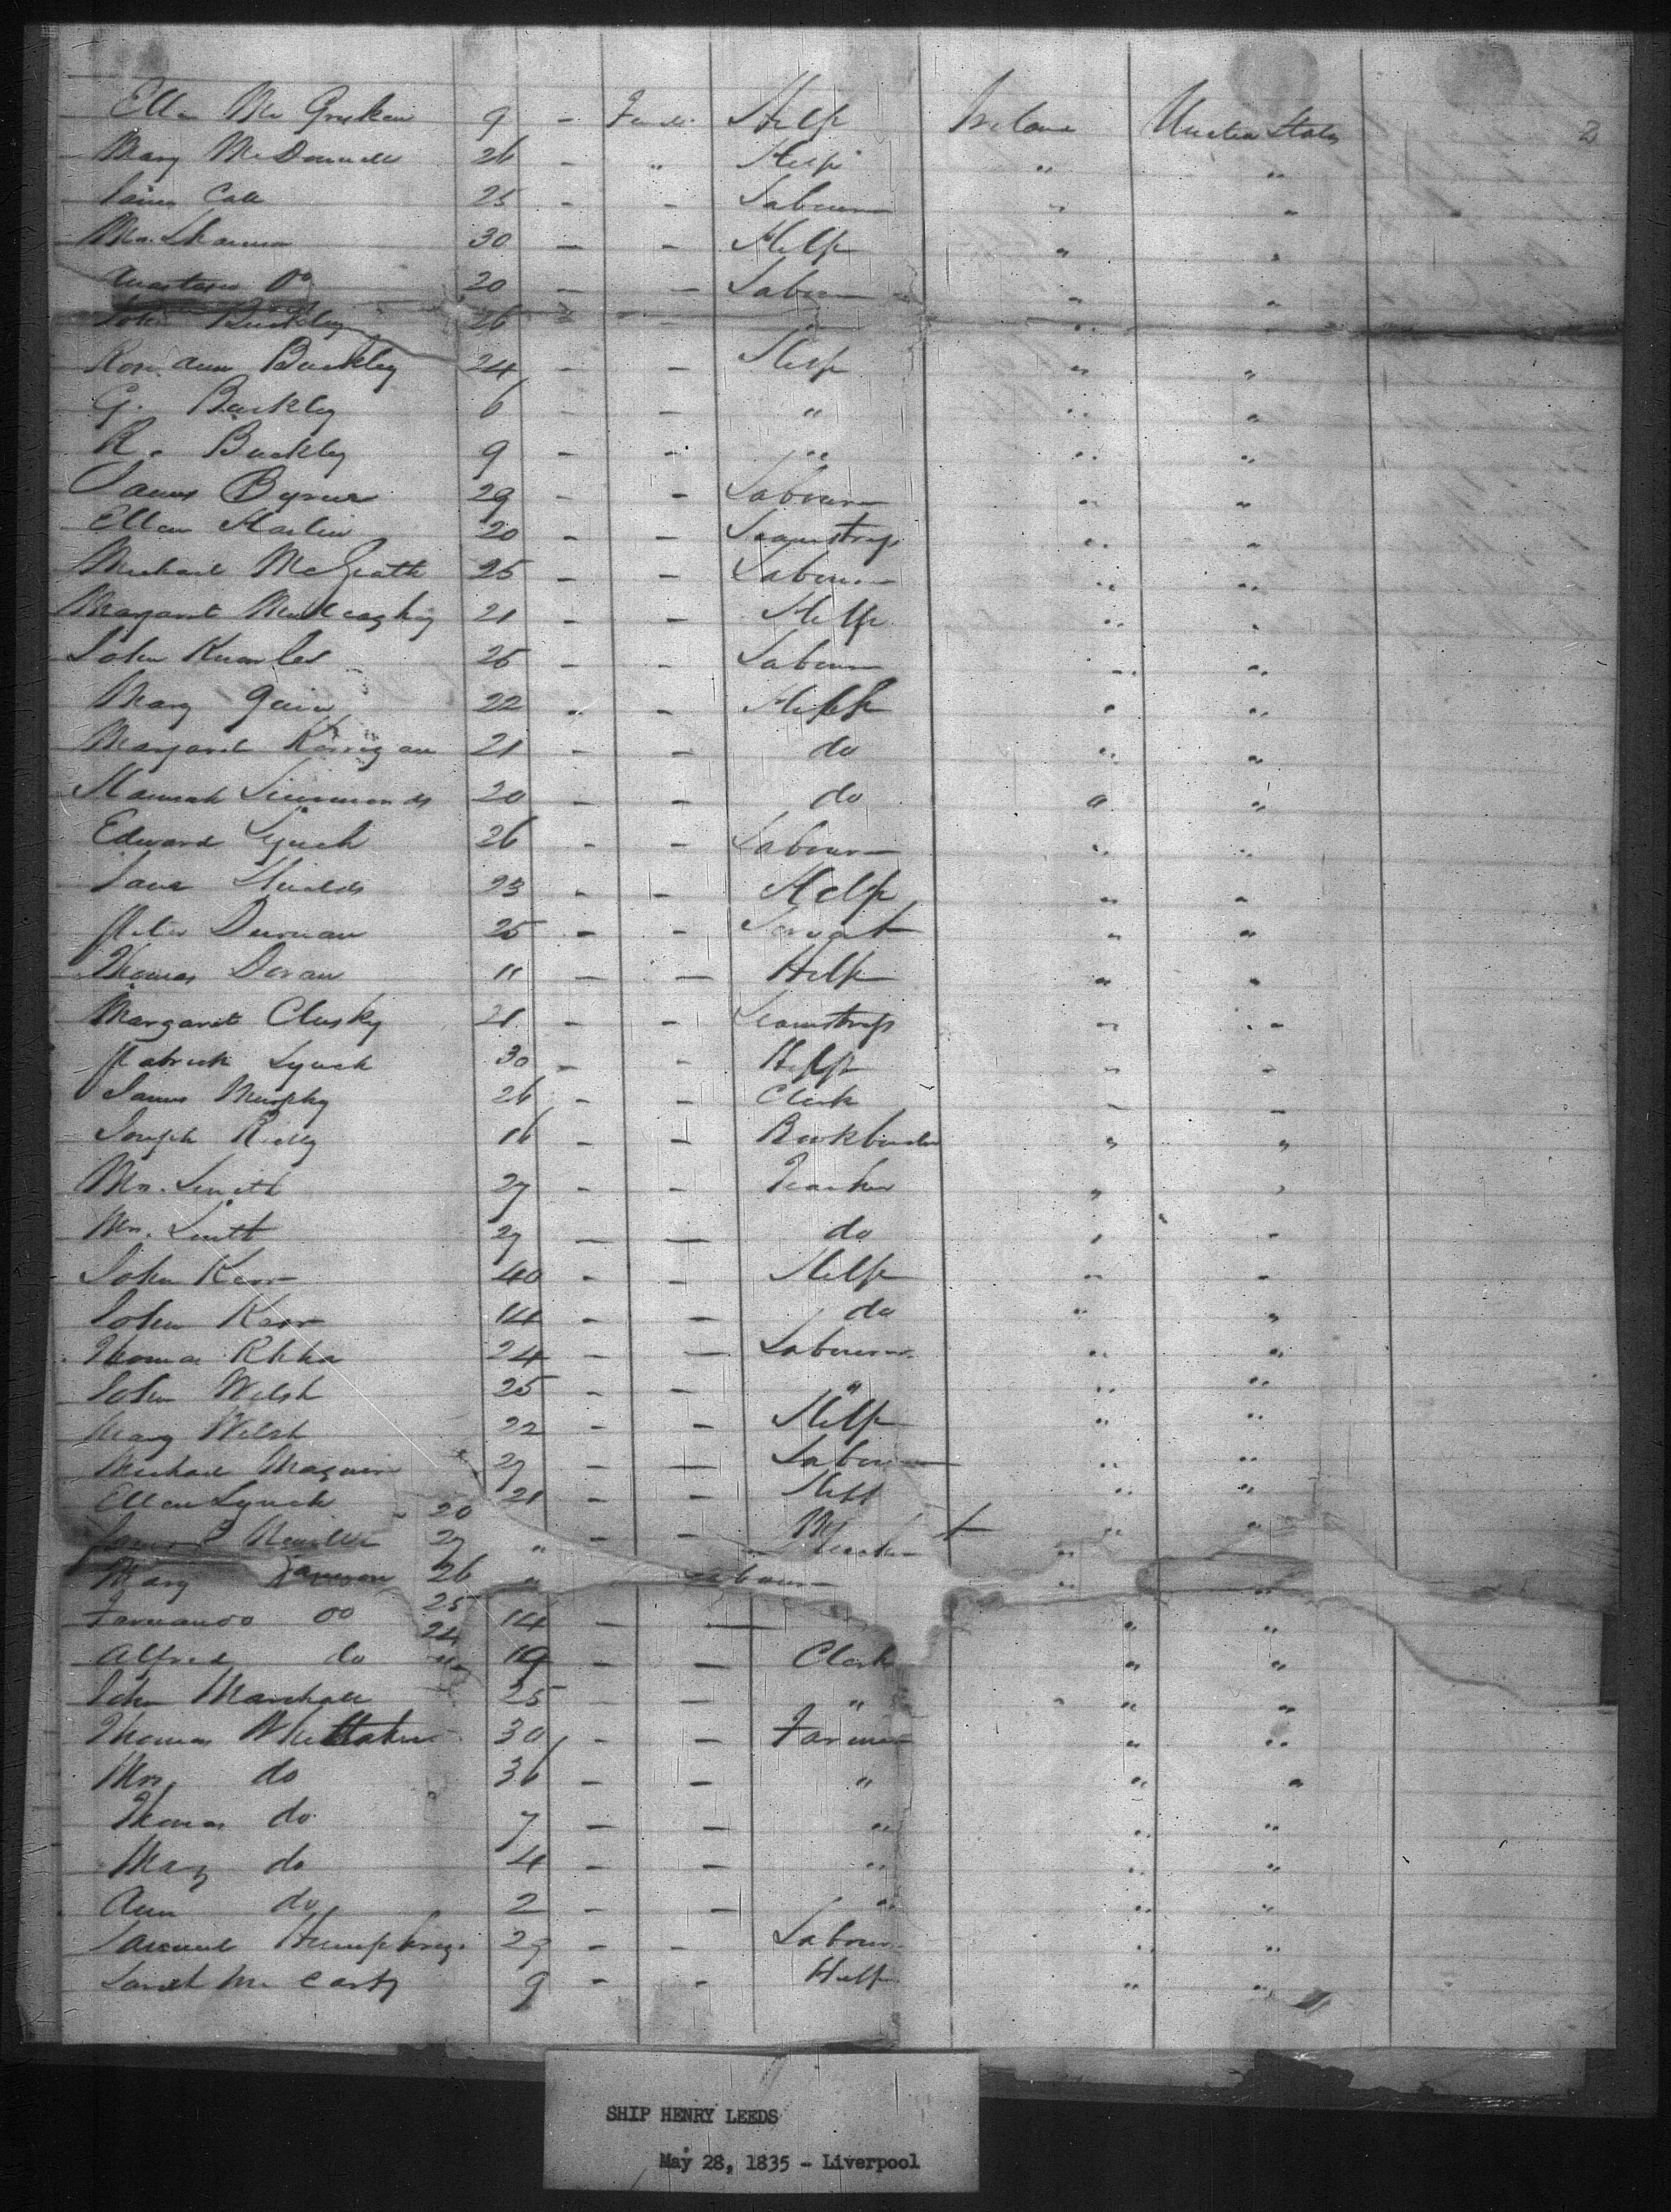 Ellen Mc 9 - Female Help Ireland United States 2
Mary McDonnell 26 - " Help " "
James Call 25 - - Labourer " "
Mr. Shannon 30 - - Help " "
Anastasia Do 20 - - Labourer " "
John Buckley 26 - - " "
Rose Ann Buckley 24 - - Help " "
G. Buckley 6 - - " " "
R. Buckley 9 - - " " "
James Byrne 29 - - Labourer " "
Ellen 20 - - Seamstress " "
Michael McGrath 25 - - Labourer " "
Margaret 21 - - Help " "
John 25 - - Labourer " "
Mary 22 " - Help " "
Margaret Kerrigan 21 - - do " "
Hannah Simmonds 20 - - do " "
Edward Lynch 26 - - Labourer " "
Jane Shields 23 - - Help " "
Peter 25 - - Servant " "
Thomas Doran 11 - - Help " "
Margaret Clusky 21 - - Seamstress " "
Patrick Lynch 30 - - Help " "
James Murphy 26 - - Clerk - -
Joseph 16 - - Bookbinder " "
Mr. Smith 27 - - Teacher " "
Mrs. Smith 27 - - do " "
John Kerr 40 - - Help " "
John Kerr 14 - - do " "
Thomas 24 - - Labourer " "
John Welsh 25 - - " " "
Mary Welsh 22 - - Help " "
Michael 27 - - Labourer " "
Ellen Lynch 20 21 - - Help " "
27 " - - " "
Mary 26 " Labourer " "
Do 25 14 - - " "
Alfred do 24 19 - - Clerk " "
John Marshall 25 - - " " "
Thomas Whittaker 30 - - Farmer " "
Mrs. do 36 - - " " "
Thomas do 7 - - " " "
Mary do 4 - - " " "
Ann do 2 - - " " "
Samuel Humphreys 29 - - Labourer " "
Sarah McCarty 9 - - Help " "
SHIP HENRY LEEDS
May 28, 1835 - Liverpool